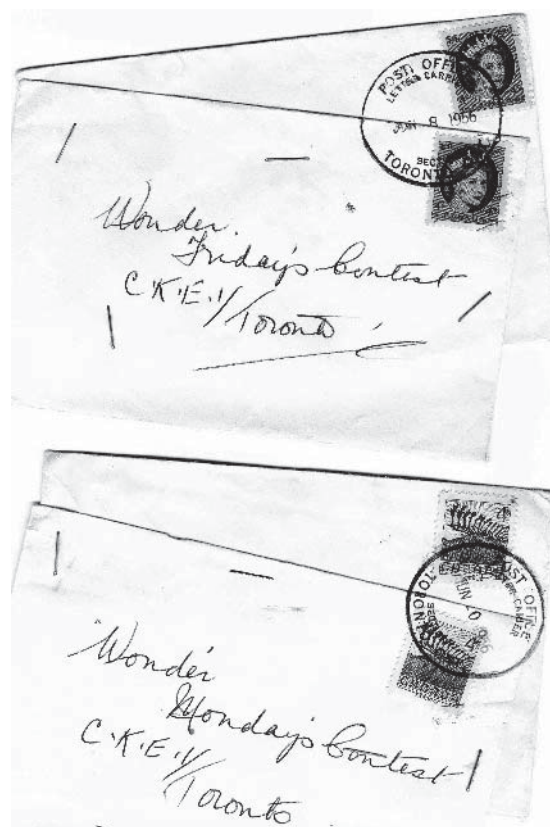 POST OFFICE
LETTER CARRIER
JUN 8 1956
TORONTO
Wonder.
Friday's Contest
C.K.E.Y/
Toronto
POST OFFICE
TORONTO
JUN 20
Wonder
Monday's Contest
C.K.E.Y/
Toronto